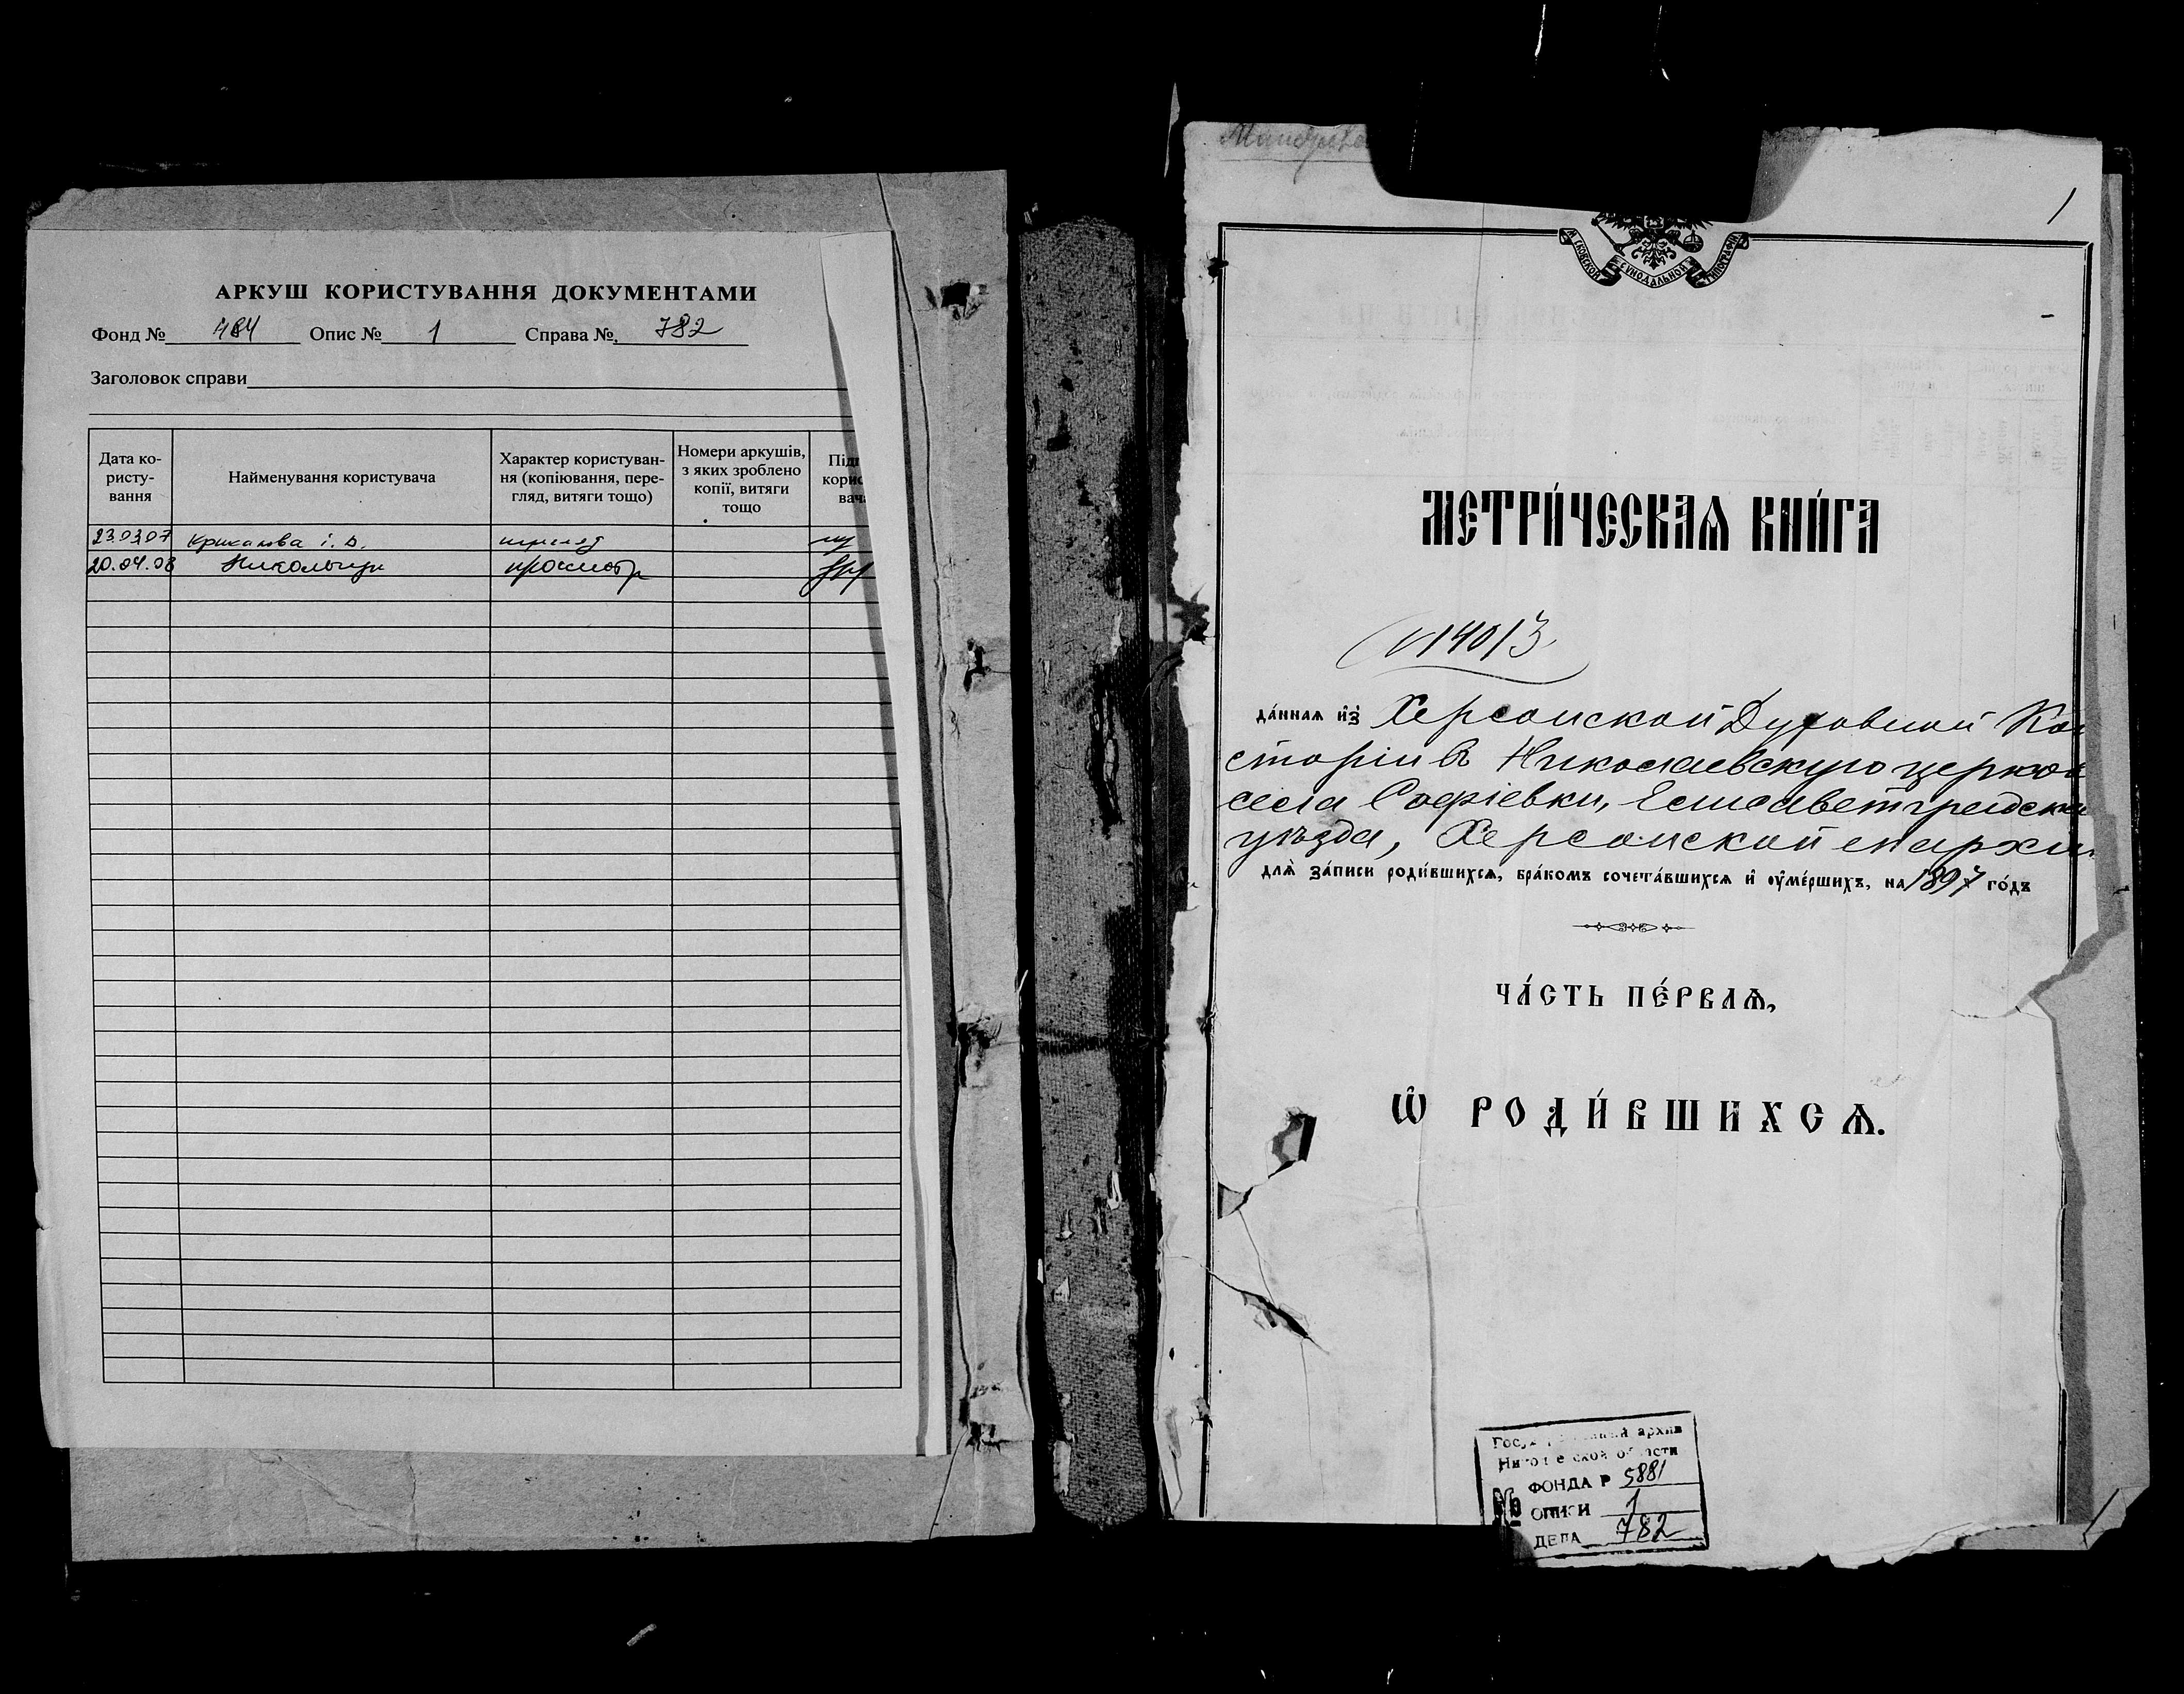 АРКУШ КОРИСТУВАННЯ ДОКУМЕНТАМИ
Фонд № 484 Опис № 1 Справа № 782
Заголовок справи
Дата ко-
ристу-
вання
Найменування користувача
Характер користуван-
ня (копіювання, пере-
гляд, витяги тощо)
Номери аркушів,
з яких зроблено
копії, витяги
тощо
Підп
корис
вача
23.03.07
20.04.08 просмотр
1
МОСКОВСКОЙ СѴНОДАЛЬНОЙ ТИПОГРАФІИ
МЕТРИ́ЧЕСКАѦ КНИ́ГА
N 14013
да́ннаѧ и҆з̾ Херсонской Духовной Кон
сторіи въ Николаевскую церков
села Софіевки, Елисаветградска
уѣзда, Херсонской епархіи
для̀ за́писи роди́вшихсѧ, бра́комъ сочета́вшихсѧ и҆ ᲂу҆ме́ршихъ, на 1897 го́дъ
ЧА́СТЬ ПЕ́РВАѦ,
Ѽ РОДИ́ВШИХСѦ.
Государственный архив
Николаевской области
№
ФОНДА Р 5881
ОПИСИ 1
ДЕЛА 782